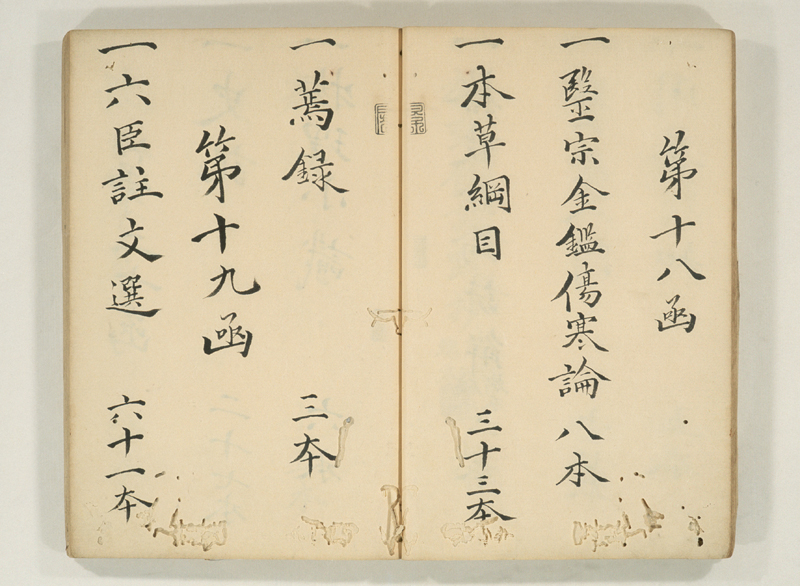 第十八函
一 毉宗金鑑傷寒論 八本
一 本草綱目 三十三本
一 蔫録 三本
第十九函
一 六臣註文選 六十一本